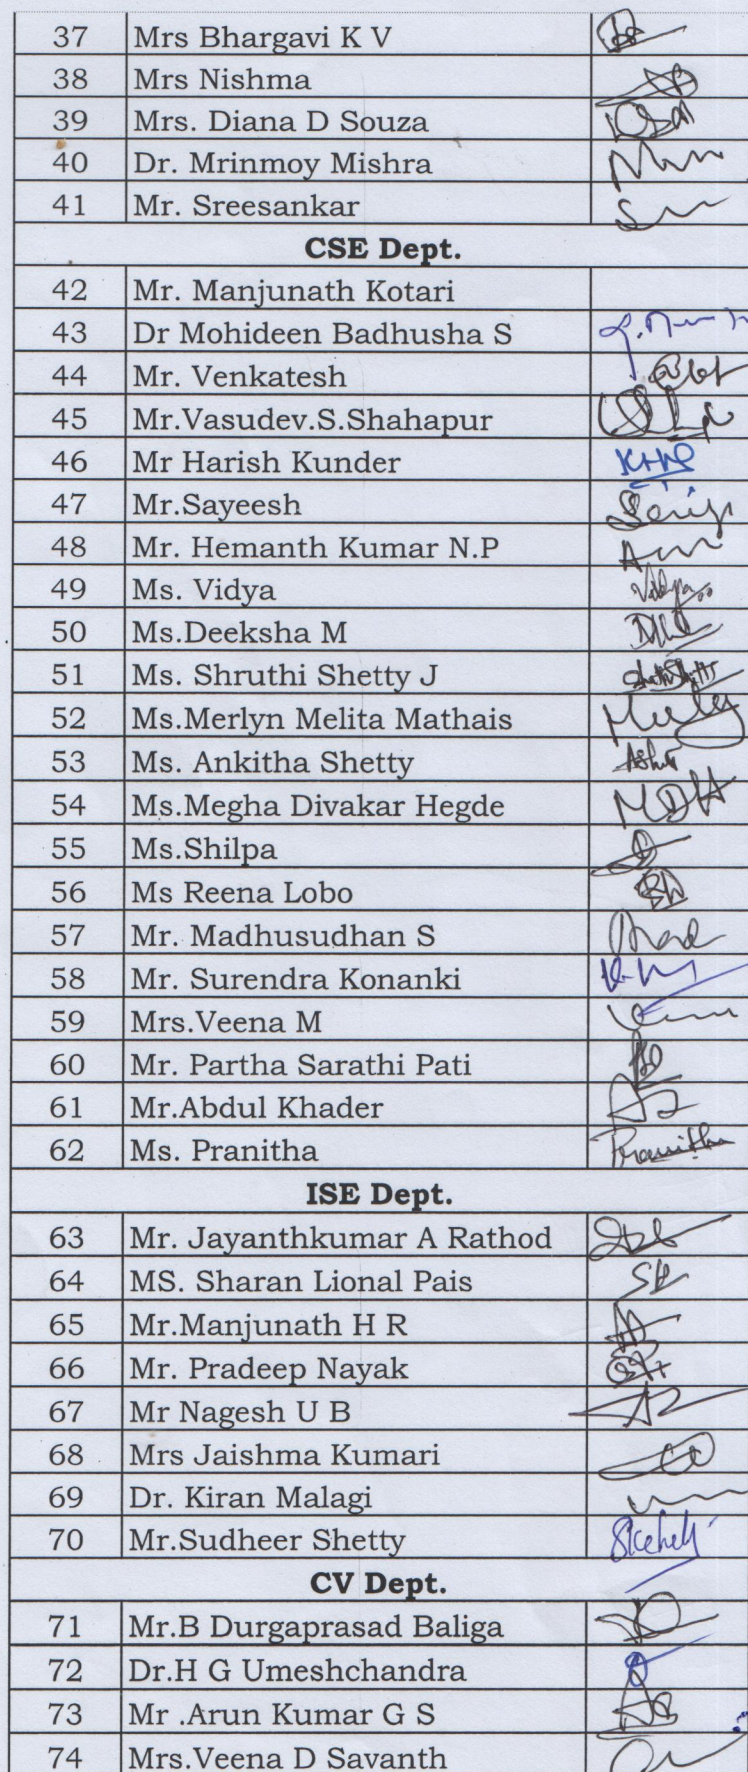 37 Mrs Bhargavi K V
38 Mrs Nishma
39 Mrs. Diana D Souza
40 Dr. Mrinmoy Mishra
41 Mr. Sreesankar
CSE Dept.
42 Mr. Manjunath Kotari
43 Dr Mohideen Badhusha S
44 Mr. Venkatesh
45 Mr.Vasudev.S.Shahapur
46 Mr Harish Kunder
47 Mr.Sayeesh
48 Mr. Hemanth Kumar N.P
49 Ms. Vidya
50 Ms.Deeksha M
51 Ms. Shruthi Shetty J
52 Ms.Merlyn Melita Mathais
53 Ms. Ankitha Shetty
54 Ms.Megha Divakar Hegde MDH
55 Ms.Shilpa
56 Ms Reena Lobo
57 Mr. Madhusudhan S
58 Mr. Surendra Konanki
59 Mrs.Veena M
60 Mr. Partha Sarathi Pati
61 Mr.Abdul Khader
62 Ms. Pranitha Pranitha
ISE Dept.
63 Mr. Jayanthkumar A Rathod
64 MS. Sharan Lional Pais
65 Mr.Manjunath H R
66 Mr. Pradeep Nayak
67 Mr Nagesh U B
68 Mrs Jaishma Kumari
69 Dr. Kiran Malagi
70 Mr.Sudheer Shetty
CV Dept.
71 Mr.B Durgaprasad Baliga
72 Dr.H G Umeshchandra
73 Mr .Arun Kumar G S
74 Mrs.Veena D Savanth